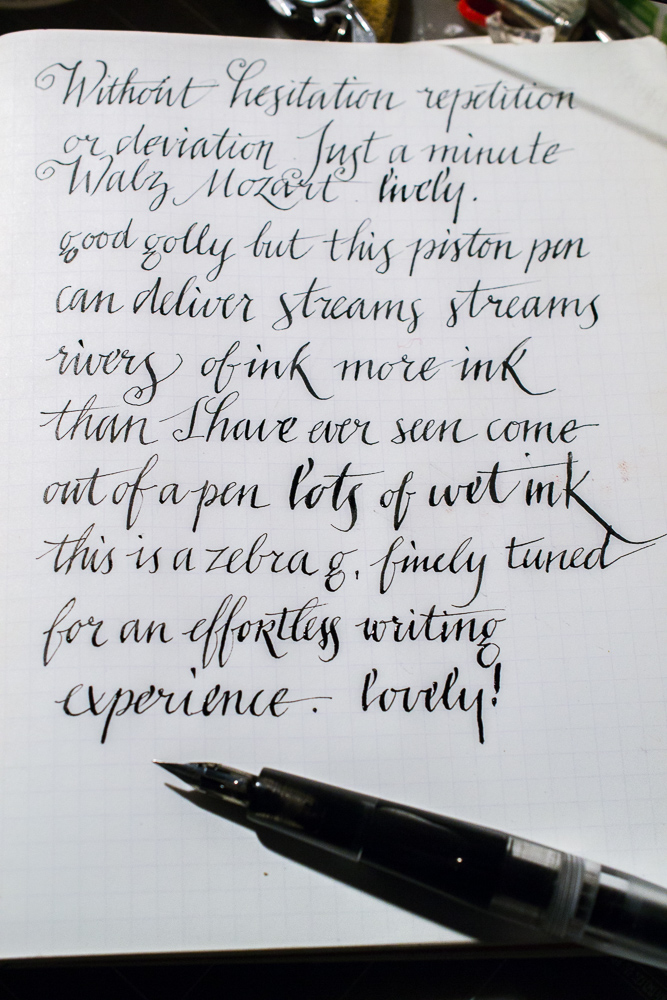 Without hesitation repetition
or deviation Just a minute
Walz Mozart lively.
good golly but this piston pen
can deliver streams streams
rivers of ink more ink
than I have ever seen come
out of a pen lots of wet ink
this is a zebra g, finely tuned
for an effortless writing
experience. lovely!